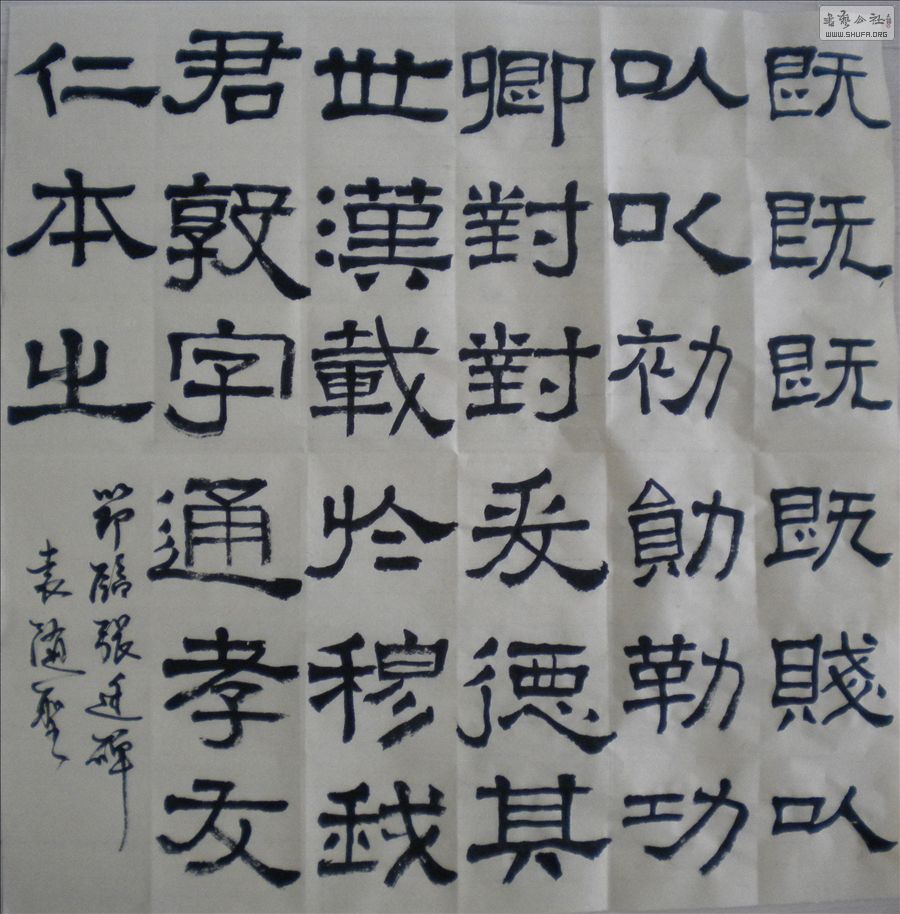 既既既既賤以
以以初勛勒功
卿對對爰德其
世漢載於穆我
君敦字通孝友
仁本之
節臨張遷碑
袁随聖
書藝公社
WWW.SHUFA.ORG